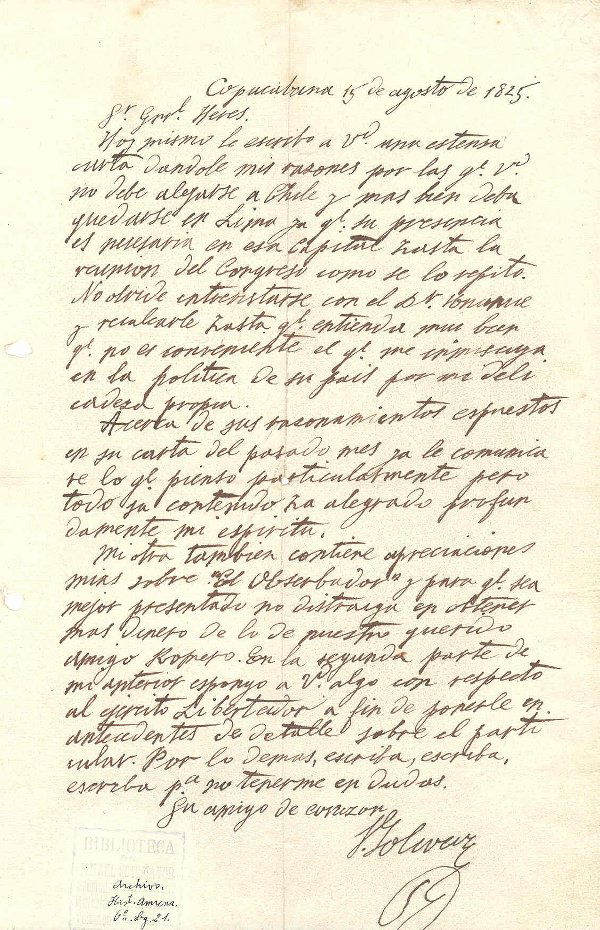 Copacabana 15 de agosto de 1825.
Sr. Grâl. Heres.
Hoy mismo le escribo a Vd. una estensa
carta dandole mis razones por las ql. Vd.
no debe alejarse a Chile y mas bien deba
quedarse en Lima ya ql. su presencia
es nesesaria en esa Capital hasta la
reunion del Congreso como se lo repito.
No olvide entrebistarse con el Dr. Unanue
y recalcarle hasta ql. entienda mui bien
ql. no es conveniente el ql. me inmiscuya
en la politica de su pais por mi deli
cadeza propia.
Acerca de sus razonamientos espuestos
en su carta del pasado mes ya le comunica
re lo ql. pienso particularmente pero
todo su contenido ha alegrado profun
damente mi espiritu.
Mi otra tambien contiene apreciaciones
mias sobre "El Obserbador" y para ql. sea
mejor presentado no distraiga en obtener
mas dinero de lo de nuestro querido
amigo Romero. En la segunda parte de
mi anterior espongo a Vd. algo con respecto
al ejercito Libertador a fin de ponerle en
antecedentes de detalle sobre el parti
cular. Por lo demas, escriba, escriba,
escriba pa. no tenerme en dudas.
Su amigo de corazon
S. Bolivar
BIBLIOTECA
Archivo.